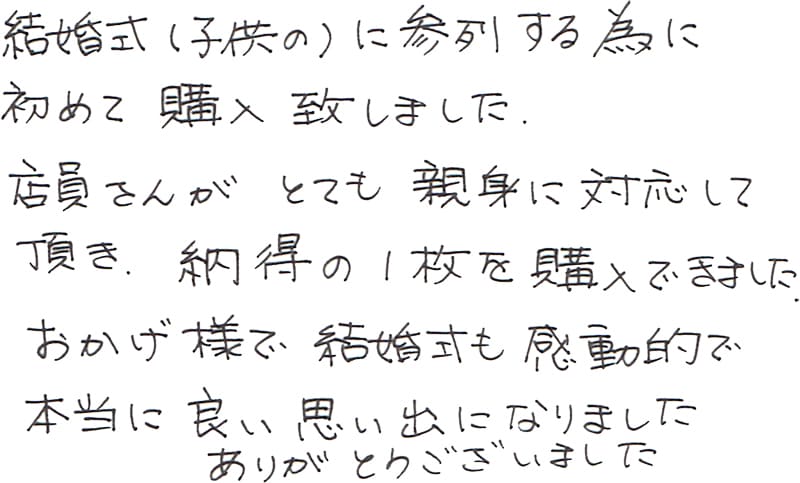 結婚式(子供の)に参列する為に
初めて購入致しました.
店員さんがとても親身に対応して
頂き.納得の1枚を購入できました.
おかげ様で結婚式も感動的で
本当に良い思い出になりました
ありがとうございました